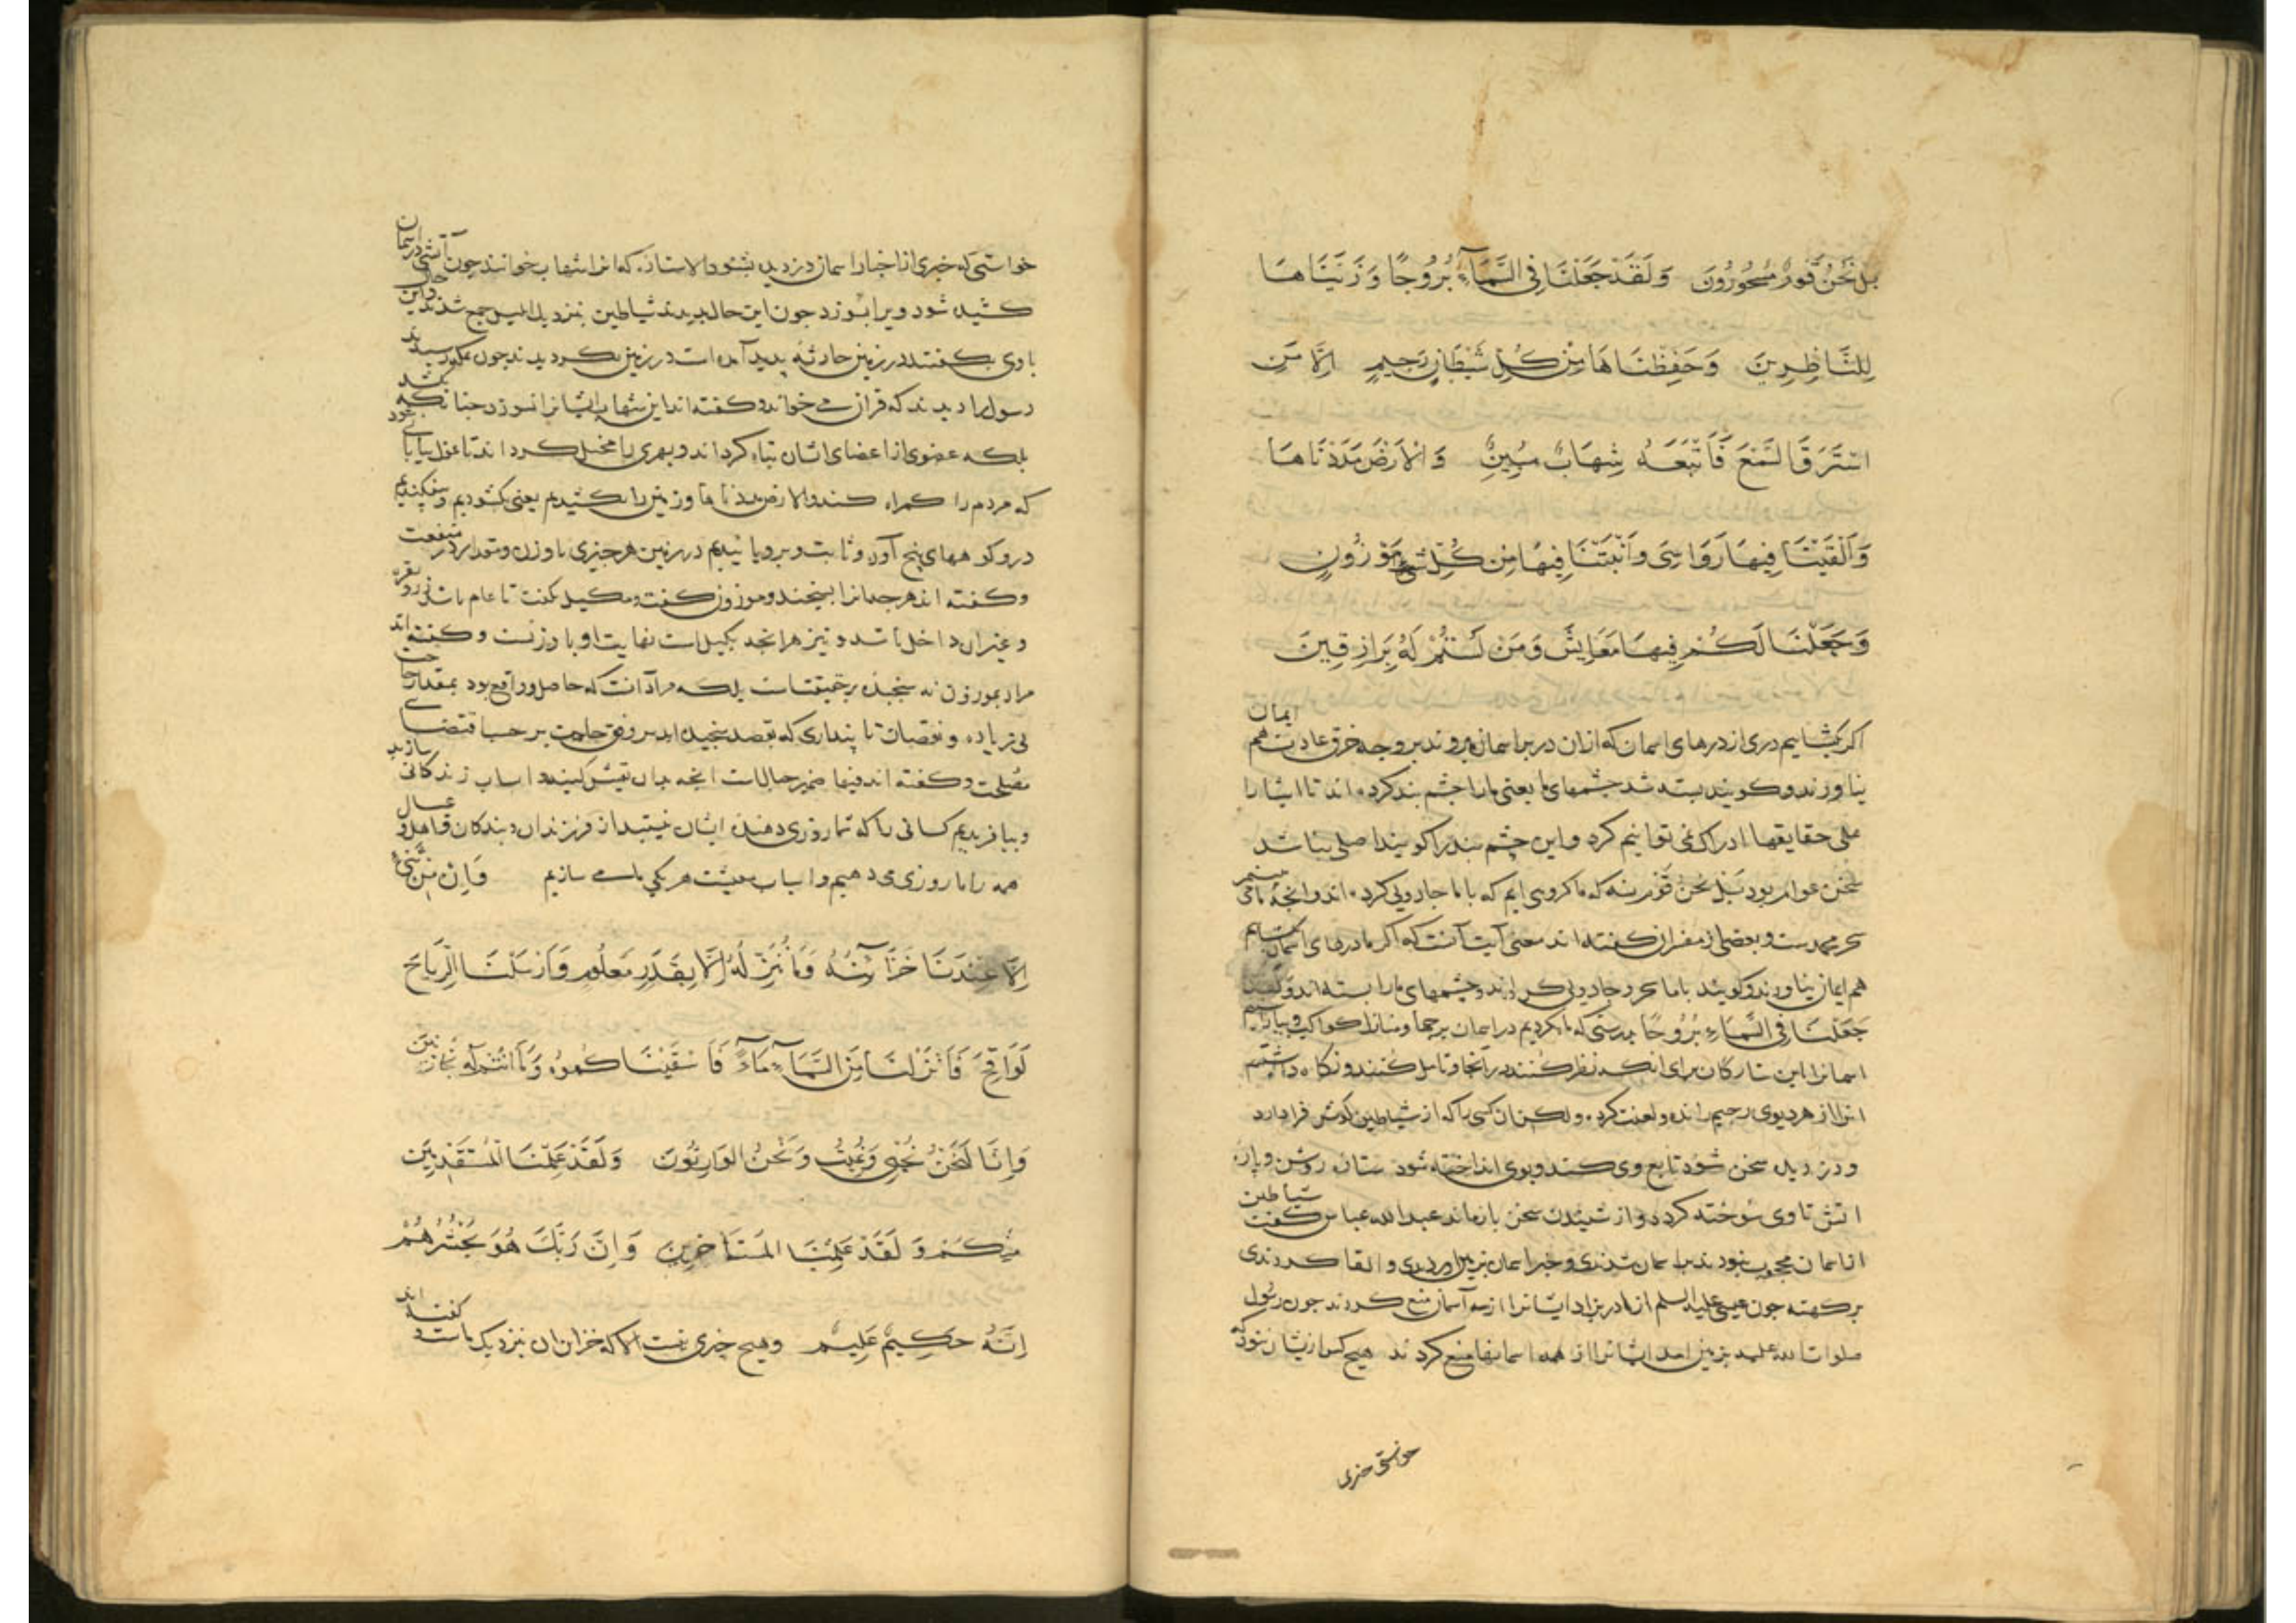 بَلْ نَحْنُ قَوْمٌ مَسْحُورُونَ وَلَقَدْ جَعَلْنَا فِي السَّمَآءِ بُرُوجًا وَزَيَّنَّاهَا
لِلنَّاظِرِينَ وَحَفِظْنَاهَا مِنْ كُلِّ شَيْطَانٍ رَجِيمٍ اِلَّا مَنِ
اسْتَرَقَ السَّمْعَ فَأَتْبَعَهُ شِهَابٌ مُبِينٌ وَالْاَرْضَ مَدَدْنَاهَا
وَاَلْقَيْنَا فِيهَا رَوَاسِىَ وَاَنْبَتْنَا فِيهَا مِنْ كُلِّ شَىْءٍ مَوْزُونٍ
وَجَعَلْنَا لَكُمْ فِيهَا مَعَايِشَ وَمَنْ لَسْتُمْ لَهُ بِرَازِقِينَ
اکر بکشاییم دری از درهای اسمان که ازان در بر اسمان میروند بر وجه خرق عادت هم ایمان
نیاورند و کویند بسته شد چشمهای ما یعنی ما را چشم بند کرده اند تا اشیا را
علی حقایقها ادراک نمی توانیم کرد و این چشم بند را کویند اصلی نباشد
سخن عوام بود بَلْ نَحْنُ قَوْمٌ نه که ما کروهی ایم که با ما جادویی کرده اند و انچه ما می
سحر محمدست و بعضی از مفسران کفته اند معنی آیت آنست که اکر ما درهای اسمان بکشاییم
هم ایمان نیاورند و کویند با ما سحر و جادویی کرده اند و چشمهای ما را بسته اند وَلَقَدْ
جَعَلْنَا فِي السَّمَاءِ بُرُوجًا بدرستی که ما بکردیم در اسمان برجها و منازل کواکب و بیاراستیم
اسمانرا باین ستارکان برای انکه نظر کنند در آنجا و تامل کنند و نکاه داشتیم
انرا از هر دیوی رجیم رانده و لعنت کرده ولکن ان کسی را که از شیاطین کوش فرا دارد
و دزدیده سخن شنود تابع وی کنند و بوی انداخته شود ستاره روشن و پاره
اتش تا وی سوخته کردد و از شنیدن سخن باز ماند عبدالله عباس کفت شیاطین
از اسمان محجوب نبودند بر اسمان شدندی و خبر اسمان بزمین اوردندی و القا کردندی
بر کهنه چون عیسی علیه السلم از مادر بزاد ایشانرا از سه آسمان منع کردند چون رسول
صلوات الله علیه بزمین امد ایشانرا از همه اسمانها منع کردند هیچ کس از یشان نبود که
خواستی خبری
خواستی که خبری از اخبار اسمان دزدیده بشنود الا ستاره که انرا شهاب خوانند چون آتشی در اسمان
کشیده شود ویرا بسوزد چون این حال بدیدند شیاطین بنزدیک ابلیس جمع شدند و این حال
با وی بکفتند در زمین حادثه پدید آمده است در زمین بکردیدند چون بمکه رسیدند
رسول را دیدند که قرآن می خواند و کفته اند این شهاب ایشانرا نسوزد چنانکه بکشد
بلکه عضوی از اعضای ایشان تباه کرداند و بهری را مخبل کرداند تا غول بیابانی شود
که مردم را کمراه کنند والارض مددناها و زمین را بکشیدیم یعنی بکشودیم و بیفکندیم
در و کوههای بیخ آور و ثابت و برویانیدیم در زمین هر چیزی با وزن و مقدار در منفعت
و کفته اند هر چه انرا بسنجند و موزون کفت و مکیل نکفت تا عام باشد زر و نقره
و غیر ان داخل باشد و نیز هر انچه بکیل است نهایت او با وزنست و کفته اند
مراد بموزون نه سنجیده بر حقیقت است بلکه مراد آنست که حاصل و واقع بود بمقدار حاجت
بی زیاده و نقصان تا پنداری که بقصد سنجیده اند بر وفق حاجت بر حسب اقتضای
مصلحت و کفته اند فیها ضمیر جبال است انچه بدان تعیش کنید و اسباب زندکانی سازید
و بیافریدیم کسانی را که شما روزی دهنده ایشان نیستید از فرزندان و بندکان و اهل و عیال
همه را ما روزی می دهیم و اسباب معیشت هر یکی ما می سازیم وَاِنْ مِنْ شَىْءٍ
اِلَّا عِنْدَنَا خَزَآئِنُهُ وَمَا نُنَزِّلُهُ اِلَّا بِقَدَرٍ مَعْلُومٍ وَاَرْسَلْنَا الرِّيَاحَ
لَوَاقِحَ فَاَنْزَلْنَا مِنَ السَّمَآءِ مَآءً فَاَسْقَيْنَاكُمُوهُ وَمَا اَنْتُمْ لَهُ بِخَازِنِينَ
وَاِنَّا لَنَحْنُ نُحْيِي وَنُمِيتُ وَنَحْنُ الْوَارِثُونَ وَلَقَدْ عَلِمْنَا الْمُسْتَقْدِمِينَ
مِنْكُمْ وَلَقَدْ عَلِمْنَا الْمُسْتَأْخِرِينَ وَاِنَّ رَبَّكَ هُوَ يَحْشُرُهُمْ
اِنَّهُ حَكِيمٌ عَلِيمٌ و هیچ چیزی نیست الا که خزاین ان نزدیک ماست و کفته اند